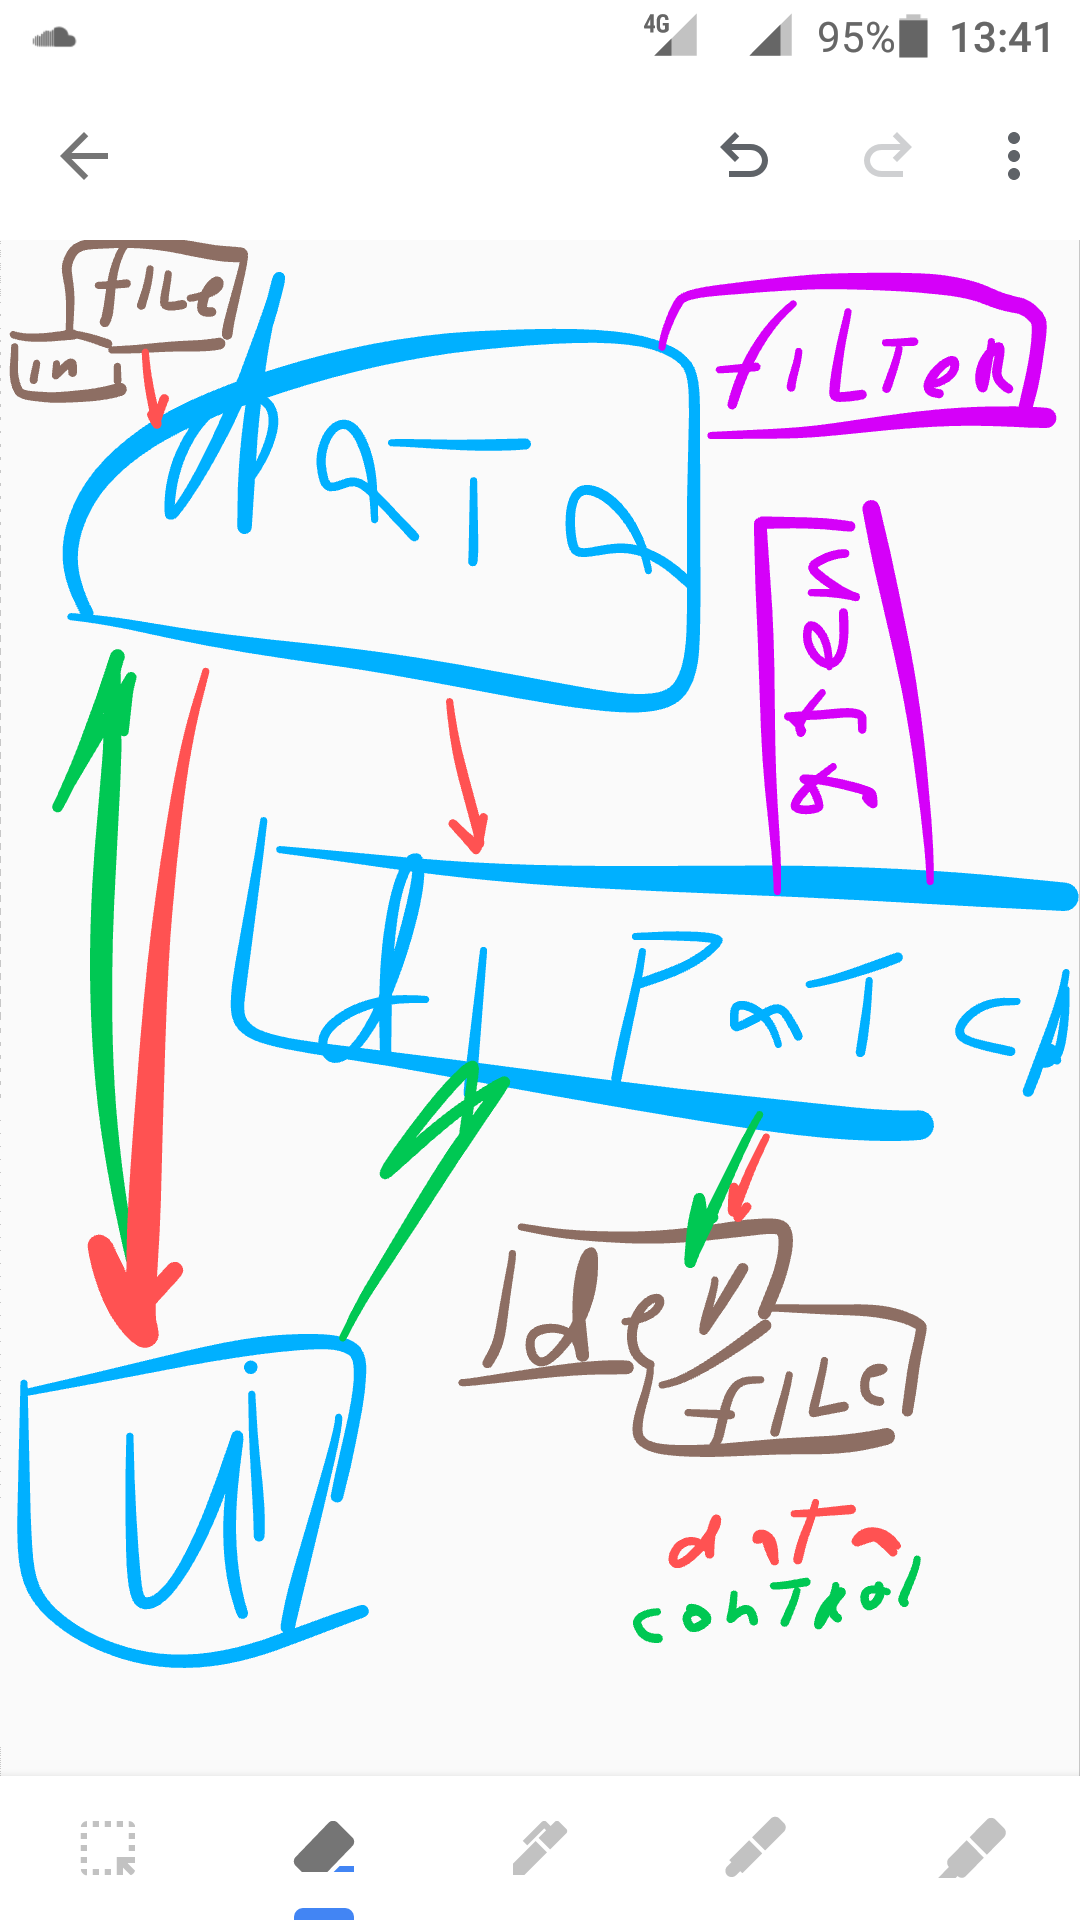 4G 95% 13:41
fILe
in
daTa
fILTeR
after
dI PaTch
Idev
fILe
Ui
data
conTRol